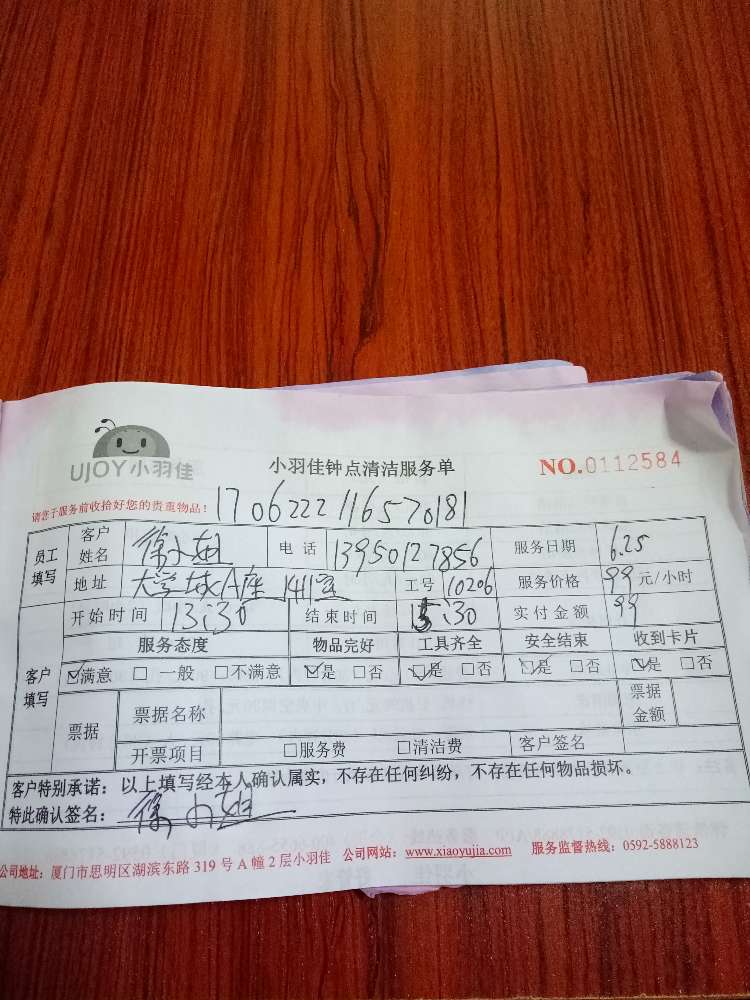 UJOY小羽佳
小羽佳钟点清洁服务单
NO.0112584
请您于服务前收拾好您的贵重物品!
1706222116570181
员工填写 客户姓名 徐小姐 电话 13950127856 服务日期 6.25
地址 大学城A座1411室 工号 10206 服务价格 99元/小时
客户填写 开始时间 13:30 结束时间 15:30 实付金额 99
服务态度 物品完好 工具齐全 安全结束 收到卡片
☑满意 □一般 □不满意 ☑是 □否 ☑是 □否 ☑是 □否 ☑是 □否
票据 票据名称 票据金额
开票项目 □服务费 □清洁费 客户签名
客户特别承诺:以上填写经本人确认属实,不存在任何纠纷,不存在任何物品损坏。
特此确认签名:徐小姐
公司地址:厦门市思明区湖滨东路319号A幢2层小羽佳 公司网站:www.xiaoyujia.com 服务监督热线:0592-5888123